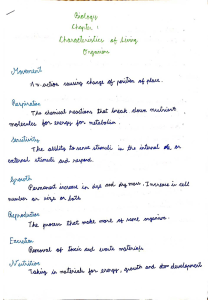 Biology
Chapter 1
Characteristics of Living
Organism
Movement
An action causing change of position of place.
Respiration
The chemical reactions that break down nutrient
molecules for energy for metabolism.
Sensitivity
The ability to sense stimuli in the internal or
external stimuli and respond.
Growth
Permanent increase in size and dry mass. Increase in cell
number or size or both
Reproduction
The process that make more of same organism.
Excretion
Removal of toxic and waste materials
Nutrition
Taking in materials for energy, growth and development